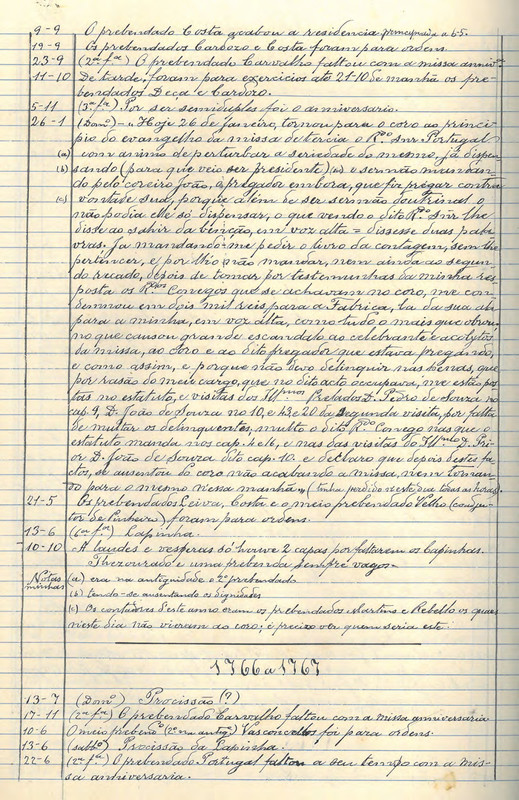 9-9 O prebendado Costa acabou a residencia principiada a 6-5.
19-9 Os prebendados Cardozo e Costa foram para ordens.
23-9 (2ª fª) O prebendado Carvalho faltou com a missa anniv.
11-10 De tarde, foram para exercicios até 21-10 de manhã os pre-
bendados Deça e Cardozo.
5-11 (3ª fª) Por ser semiduples foi o anniversario.
26-1 (Domº) - "Hoje 26 de janeiro, tornou para o coro ao princi-
pio do evangelho da missa de tercia o R.do snr. Portugal
(a) com animo de perturbar a seriedade do mesmo, já dispen-
(b) sando (para que veio ser presidente) (b) o sermão mandan-
do pelo coreiro João, o prégador embora, que fiz prégar contra
(c) vontade sua, porque além de ser sermão doutrinal o
não podia elle só dispensar, o que vendo o dito R.do snr lhe
disse ao sahir da benção, em voz alta = dissesse duas pala-
vras. Ja mandando-me pedir o livro da contagem, sem lhe
pertencer, e por lh'o não mandar, nem ainda ao segun-
do recado, depois de tomar por testemunhas da minha res-
posta os R.dos Conegos que se achavam no coro, me con-
demnou em dois mil reis, para a Fabrica, lá da sua
para a minha, em voz alta, como tudo o mais que obrou,
no que causou grande escandalo ao celebrante e acolytos
da missa, ao coro e ao dito prégador que estava prégando,
e como assim, e porque não devo delinquir nas penas, que
por rasão do meu cargo, que no dito acto occupava, me estão pos-
tas no estatuto, e visitas dos Ill.mos Prelados D. Pedro de Souza no
cap. 9, D. João de Souza no 10, e 20 da segunda visita, por falta
de multar os delinquentes, multo o dito R.do Conego nas que o
estatuto manda nos cap. 4 e 16, e nas das visitas do Ill.mo D. Pri-
or D. João de Souza dito cap. 10. e declaro que depois destes fa-
ctos, se ausentou do coro não acabando a missa, nem tornan-
do para o mesmo nessa manhã" (tinha perdido neste dia todas as horas).
21-5 Os prebendados Leiva, Costa e o meio prebendado Velho (coadju-
tor de Pinheiro) foram para ordens.
13-6 (6ª fª) Lapinha.
10-10 A laudes e vesperas só houve 2 capas por faltarem os Capinhas.
Thezourado e uma prebenda sempre vagos.
Notas minhas (a) era na antiguidade o 2º prebendado
(b) tendo-se ausentando os dignidades
(c) Os contadores d'este anno eram os prebendados Martins e Rebello os quaes
neste dia não vieram ao coro; é preciso ver quem seria este.
1766 a 1767
13-7 (Domº) Procissão (?)
17-11 (2ª fª) O prebendado Carvalho faltou com a missa anniversaria
10-6 O meio prebendº (2º na antigª) Vasconcellos foi para ordens.
13-6 (sabbº) Procissão da Lapinha.
22-6 (2ª fª) O prebendado Portugal faltou a seu tempo com a mis-
sa anniversaria.